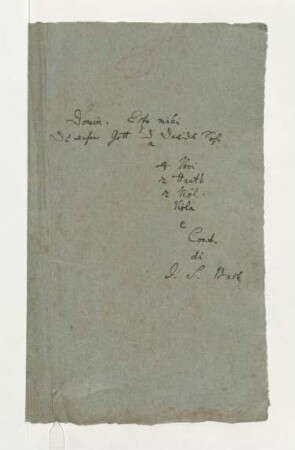 Domin. Esto mihi
Du wahrer Gott u Davids Sohn
a
4 Voci
2 Hautb
2 Viol.
Viola
e
Cont.
di
J. S. Bach